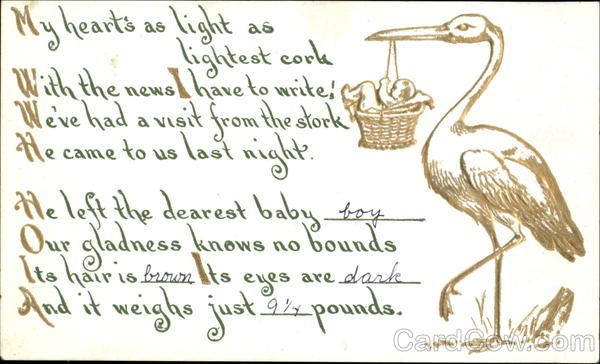 My heart's as light as
lightest cork
With the news I have to write;
We've had a visit from the stork
He came to us last night.
He left the dearest baby boy
Our gladness knows no bounds
Its hair is brown Its eyes are dark
And it weighs just 9 1/4 pounds.
CardCow.com